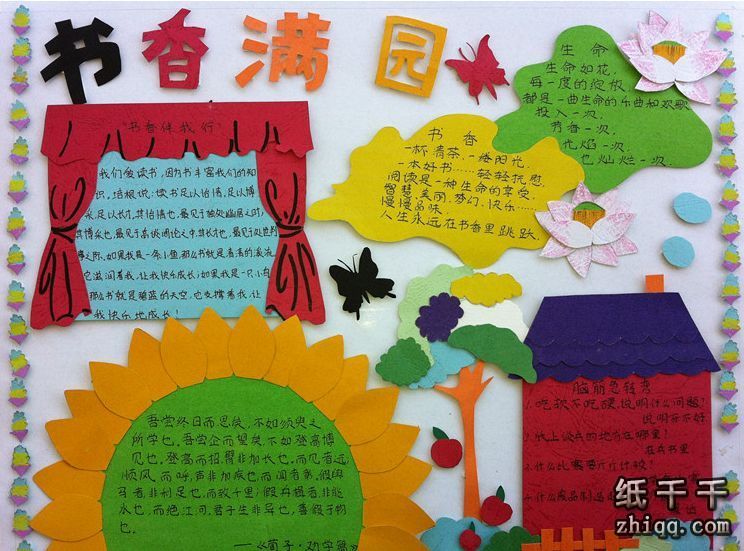 书香满园
"书香伴我行"
我们爱读书,因为书丰富我们的知
识,培根说:读书足以怡情,足以博
采,足以长才,其怡情也,最见于独处幽居之时,
其博采也,最见于高谈阔论之中,其长才也,最见于处世判
事之际.如果我是一条小鱼,那么书就是清清的
它滋润着我,让我快乐成长;如果我是一只小鸟
那么书就是蔚蓝的天空,它支撑着我,让
我快乐地成长!
书香
一杯清茶,一缕阳光,
一本好书……轻轻抚慰
阅读是一种生命的享受,
智慧、美丽、梦幻、快乐……
慢慢品味
人生永远在书香里跳跃.
生命
生命如花,
每一度的绽放,
都是一曲生命的乐曲和欢歌
投入一次,
芳香一次,
也灿烂一次.
吾尝终日而思矣,不如须臾之
所学也,吾尝企而望矣,不如登高博
见也,登高而招,臂非加长也,而见者远,
顺风而呼,声非加疾也,而闻者彰,假舆
马者,非利足也,而致千里;假舟楫者,非能
水也,而绝江河,君子生非异也,善假于物
也.
——《荀子·劝学篇》
脑筋急转弯
1.吃软不吃硬,说明什么问题?
说明牙不好
2.纸上谈兵的地方在哪里?
在兵书里
什么比赛
什么废品制造
纸千千
zhiqq.com